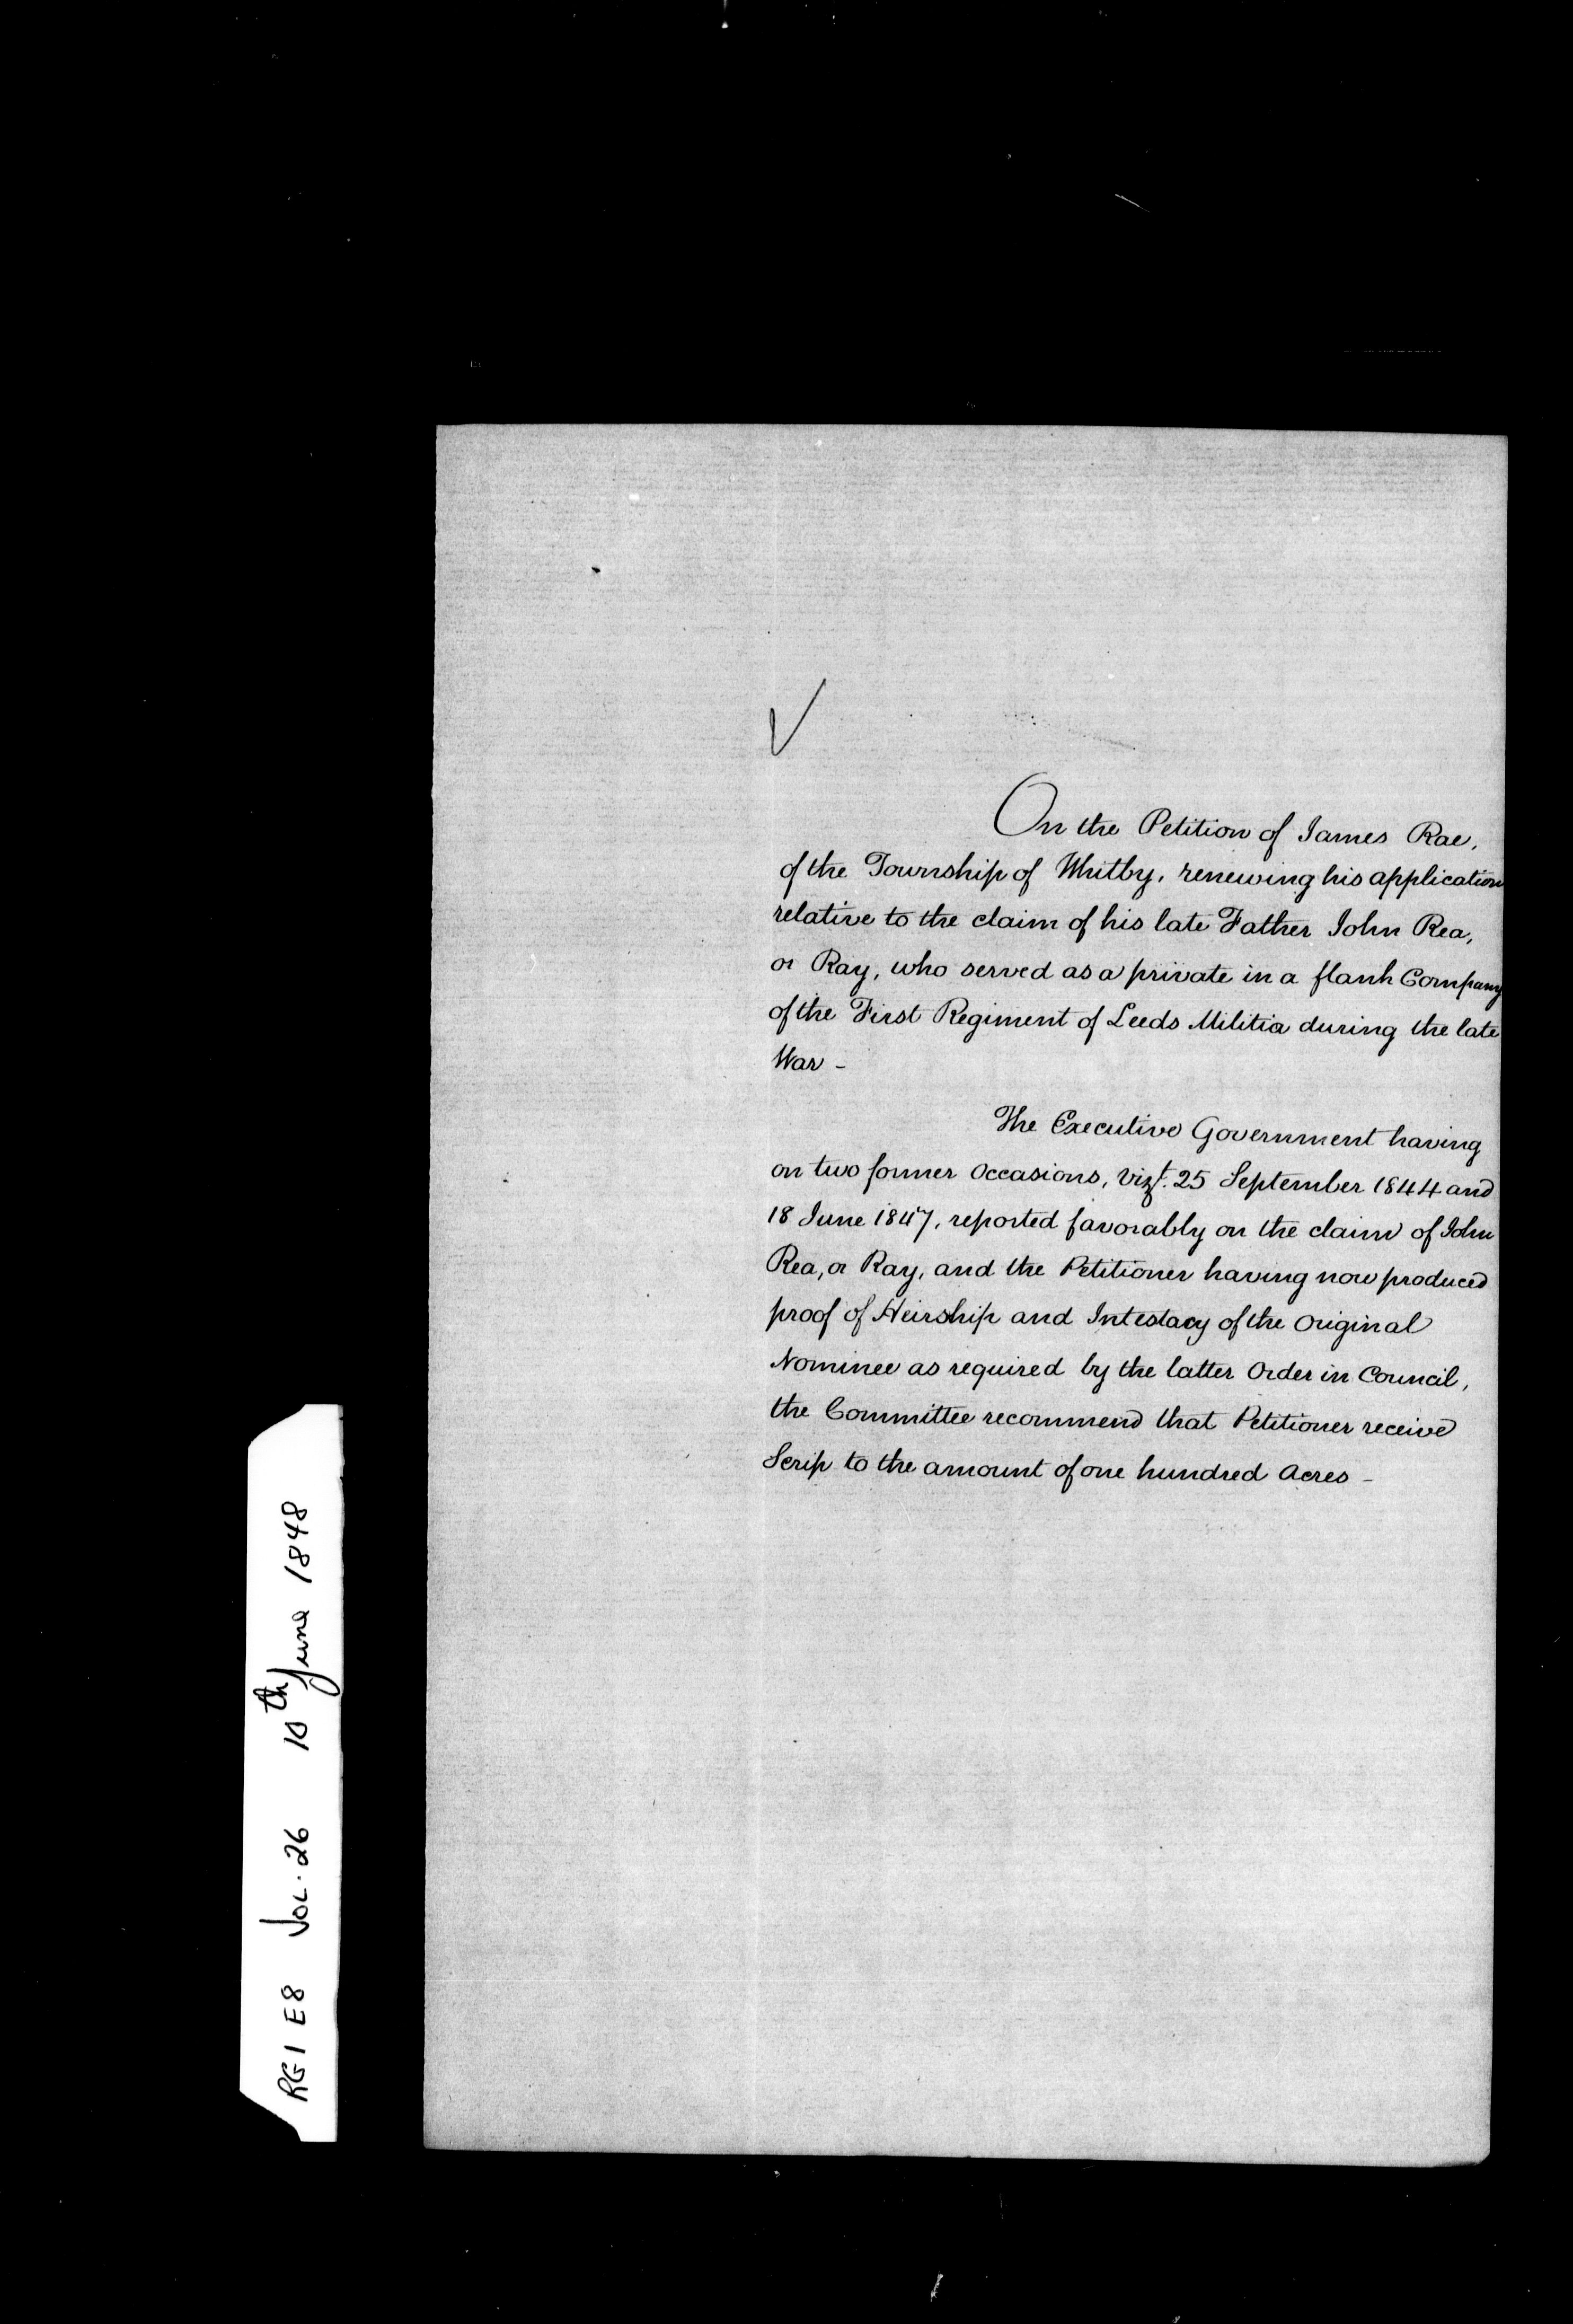 On the Petition of James Rae,
of the Township of Whitby, renewing his application
relative to the claim of his late Father John Rea,
or Ray, who served as a private in a flank Company
of the First Regiment of Leeds Militia during the late
War -
The Executive Government having
on two former occasions, vizt. 25 September 1844 and
18 June 1847, reported favorably on the claim of John
Rea, or Ray, and the Petitioner having now produced
proof of Heirship and Intestacy of the original
Nominee as required by the latter Order in Council,
the Committee recommend that Petitioner receive
Scrip to the amount of one hundred Acres -
RG 1 E8 VOL. 26 10th June 1848